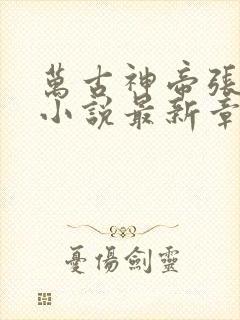 萬古神帝張
小説最新章
憂傷劍靈